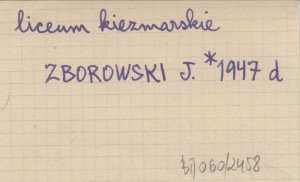 liceum kiezmarskie
ZBOROWSKI J. *1947 d
b/060/2458